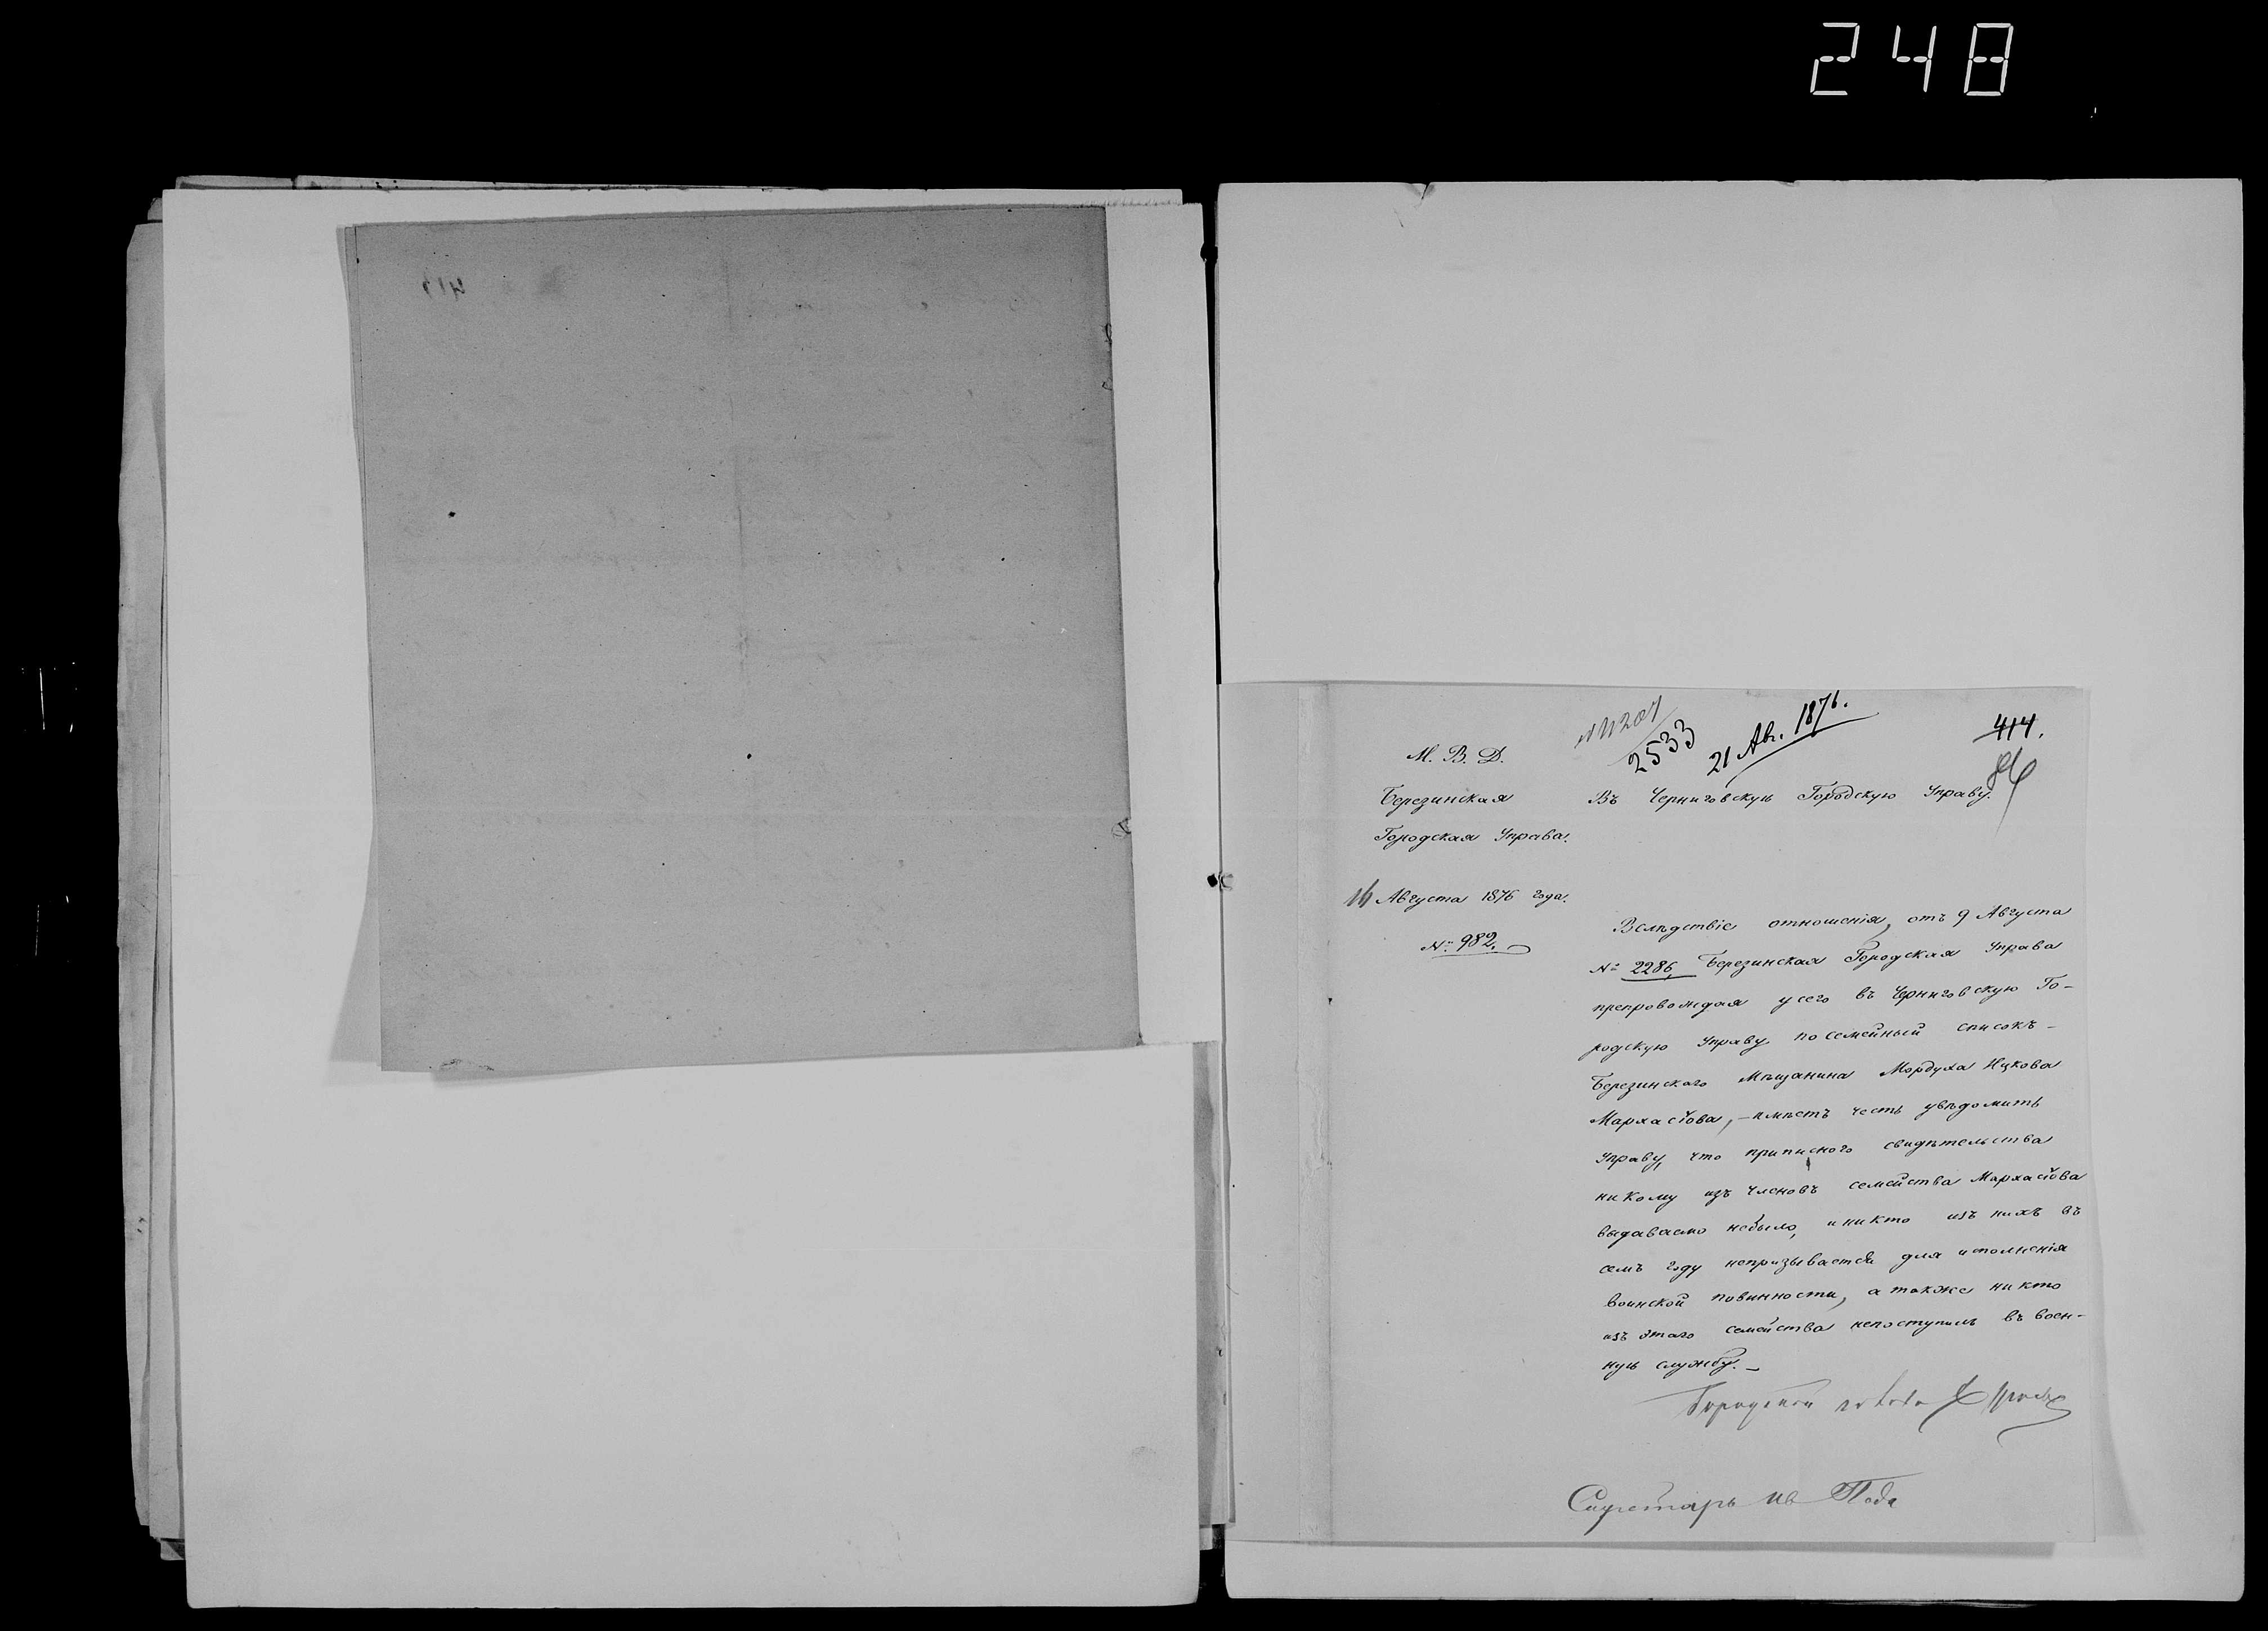 248
2533
21 Авг. 1876.
414.
М. В. Д.
Березинская
Городская Управа.
16 Августа 1876 года.
№ 982.
Въ Черниговскую Городскую Управу.
Вслѣдствіе отношенія, отъ 9 Августа
№ 2286, Березинская Городская Управа
препровождая у сего въ Черниговскую Го-
родскую Управу посемейный списокъ –
Березинскаго Мѣщанина Мордуха Ицкова
Мархасіова, – имѣетъ честь увѣдомить
Управу, что приписного свидѣтельства
никому изъ членовъ семейства Мархасіова
выдаваемо небыло, и никто изъ нихъ въ
семъ году непризывается для исполненія
воинской повинности, а также никто
изъ этаго семейства непоступилъ въ воен-
ную службу. –
Городской голова
Секретарь Ив